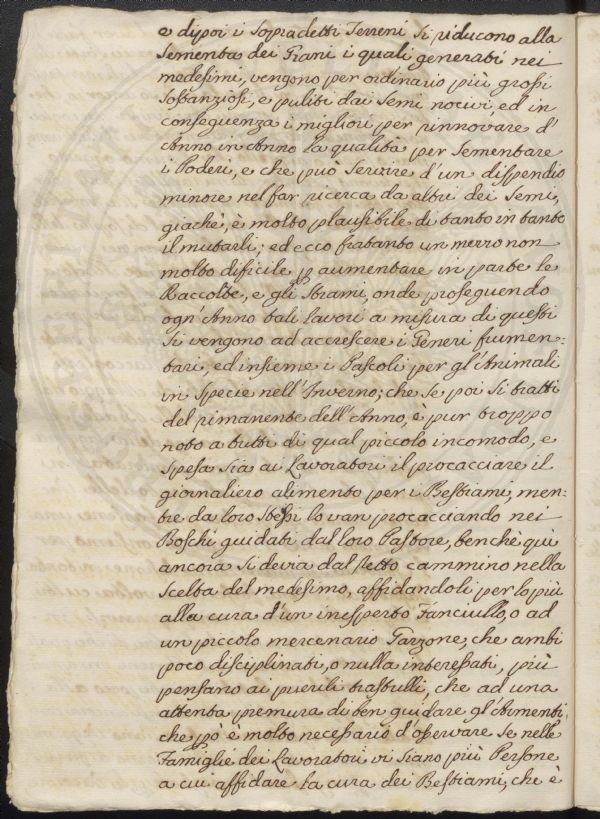 e dipoi i Sopradetti Terreni Si riducono alla
Sementa dei Grani i quali generati nei
medesimi, vengono per ordinario più grossi
Sostanziosi, e puliti dai Semi nocivi ed in
conseguenza i migliori per rinnovare d'
Anno in Anno la qualità per Sementare
i Poderi, e che può Servire d'un dispendio
minore nel far ricerca da altri dei Semi,
giachè, è molto plausibile di tanto in tanto
il mutarli; ed ecco frattanto un mezzo non
molto dificile p aumentare in parte le
Raccolte, e gli Strami, onde proseguendo
ogn' Anno tali lavori a misura di questi
Si vengono ad accrescere i Generi frumen:
tari, ed insieme i Pascoli per gl'Animali
in Specie nell'Inverno; che Se poi Si tratti
del rimanente dell'Anno, è pur troppo
noto a tutti di qual piccolo incomodo, e
Spesa Sia ai Lavoratori il procacciare il
giornaliero alimento per i Bestiami, men:
tre da loro Stessi lo van procacciando nei
Boschi guidati dal loro Pastore, benchè quì
ancora Si devia dal retto cammino nella
Scelta del medesimo, affidandoli per lo più
alla cura d'un inesperto Fanciullo, o ad
un piccolo mercenario Garzone, che ambi
poco disciplinati, o nulla interessati, più
pensano ai puerili trastulli, che ad una
attenta premura di ben guidare gl'Armenti,
che pò è molto necessario d'osservare Se nelle
Famiglie dei Lavoratori vi Siano più Persone
a cui affidare la cura dei Bestiami, che è